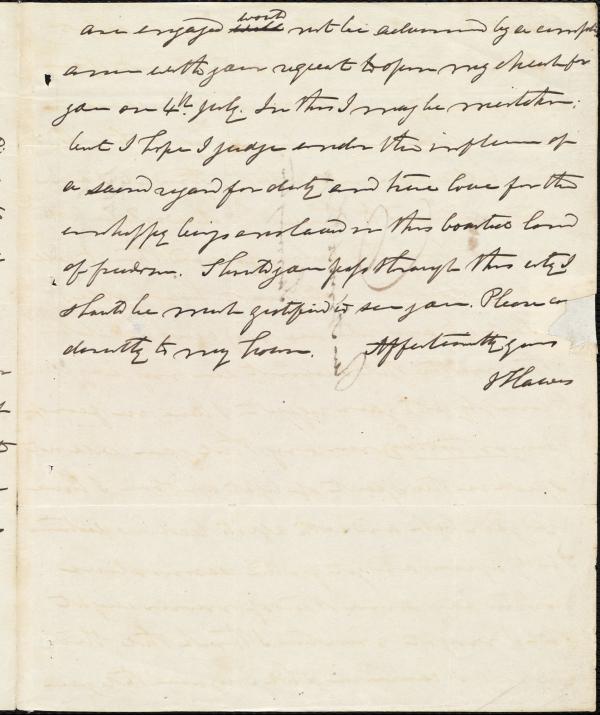 are engaged would not be advanced by a compli
ance with your request to open my church for
you on 4th. July. In this I may be mistaken;
but I hope I judge under the influence of
a sacred regard for duty and true love for the
unhappy beings enslaved in this boasted land
of freedom. Should you pass through this city I
should be most gratified to see you. Please co
directly to my house. Affectionately yours
J Hawes